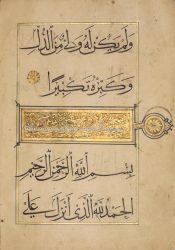 وَلَمْ يَكُنْ لَهُ وَلِيٌّ مِنَ الذُّلِّ
وَكَبِّرْهُ تَكْبِيرًا
بِسْمِ اللَّهِ الرَّحْمَنِ الرَّحِيمِ
الْحَمْدُ لِلَّهِ الَّذِي أَنْزَلَ عَلَى